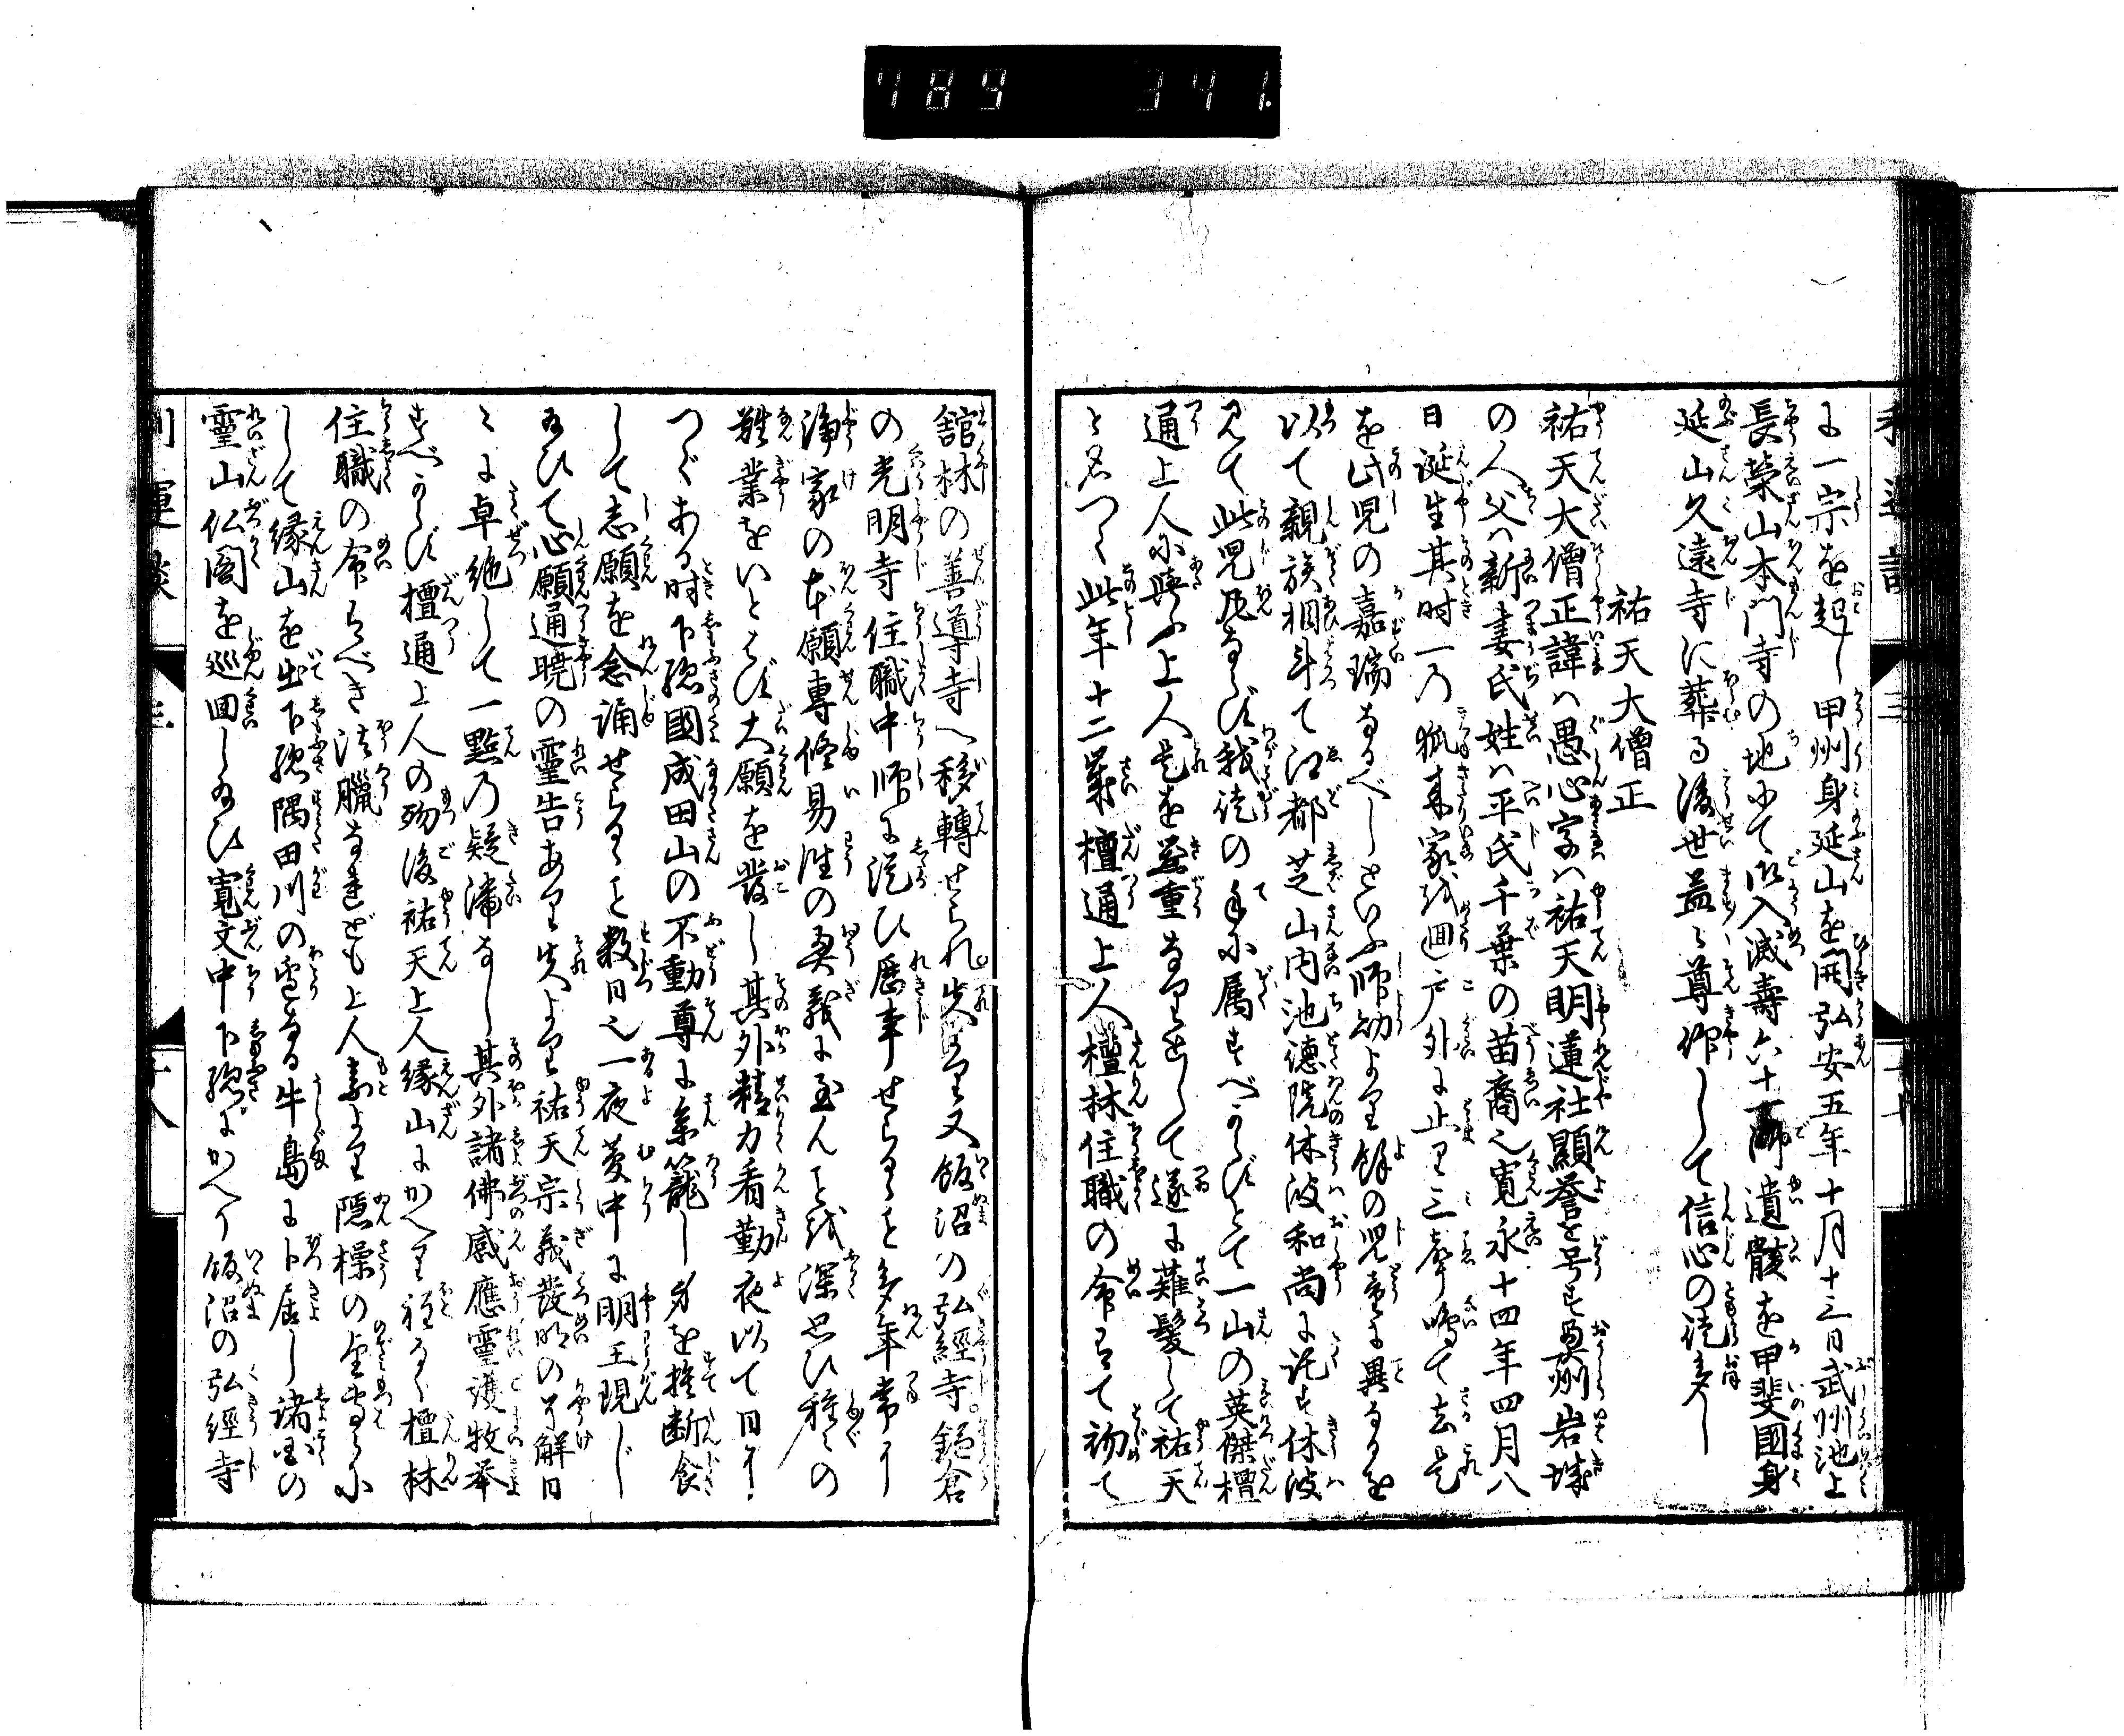 789 341.
に一宗を起し甲州身延山を開弘安五年十月十三日武州池上
長榮山本門寺の地にて御入滅壽六十一師遺骸を甲斐國身
延山久遠寺に葬る後世益々尊仰して信心の徒多し
祐天大僧正
祐天大僧正諱ハ愚心字ハ祐天明蓮社顯誉と号す奥州岩城
の人父ハ新妻氏姓ハ平氏千葉の苗裔也寛永十四年四月八
日誕生其时一の狐来家を廻戸外に止り三聲鳴て去是
を此児の嘉瑞なるべしといふ師幼より餘の児童に異なるを
以て親族相斗て江都芝山内池徳院休波和尚に託す休波
見て此児凡ならず我徒の手に属すべからずとて一山の英傑檀
通上人に與ふ上人是を甚重なりとして遂に薙髪して祐天
と名つく此年十二歳檀通上人檀林住職の命有て初て
舘林の善導寺へ移轉せられ夫より又飯沼の弘經寺鎌倉
の光明寺住職中師に従ひ歴事せらるゝと多年常に
浄家の本願專修易往の奥義に至んとを深思ひ種々の
難業をいとはず大願を發し其外精力看勤夜以て日に
つぐある时下総國成田山の不動尊に参籠し身を捨断食
して志願を念誦せらるゝと数日也一夜夢中に明王現じ
給ひて心願通曉の靈告あり夫より祐天宗義發明の了解日
々に卓絶して一點の疑滯なし其外諸佛感應靈護牧挙
すべからず檀通上人の殁後祐天上人縁山にかへり程なく檀林
住職の命有べき法臘なれども上人素より隠操の望専らに
して縁山を出下総隅田川の邊なる牛島に卜居し諸国の
靈山仏閣を巡回し給ひ寛文中下総にかへり飯沼の弘經寺